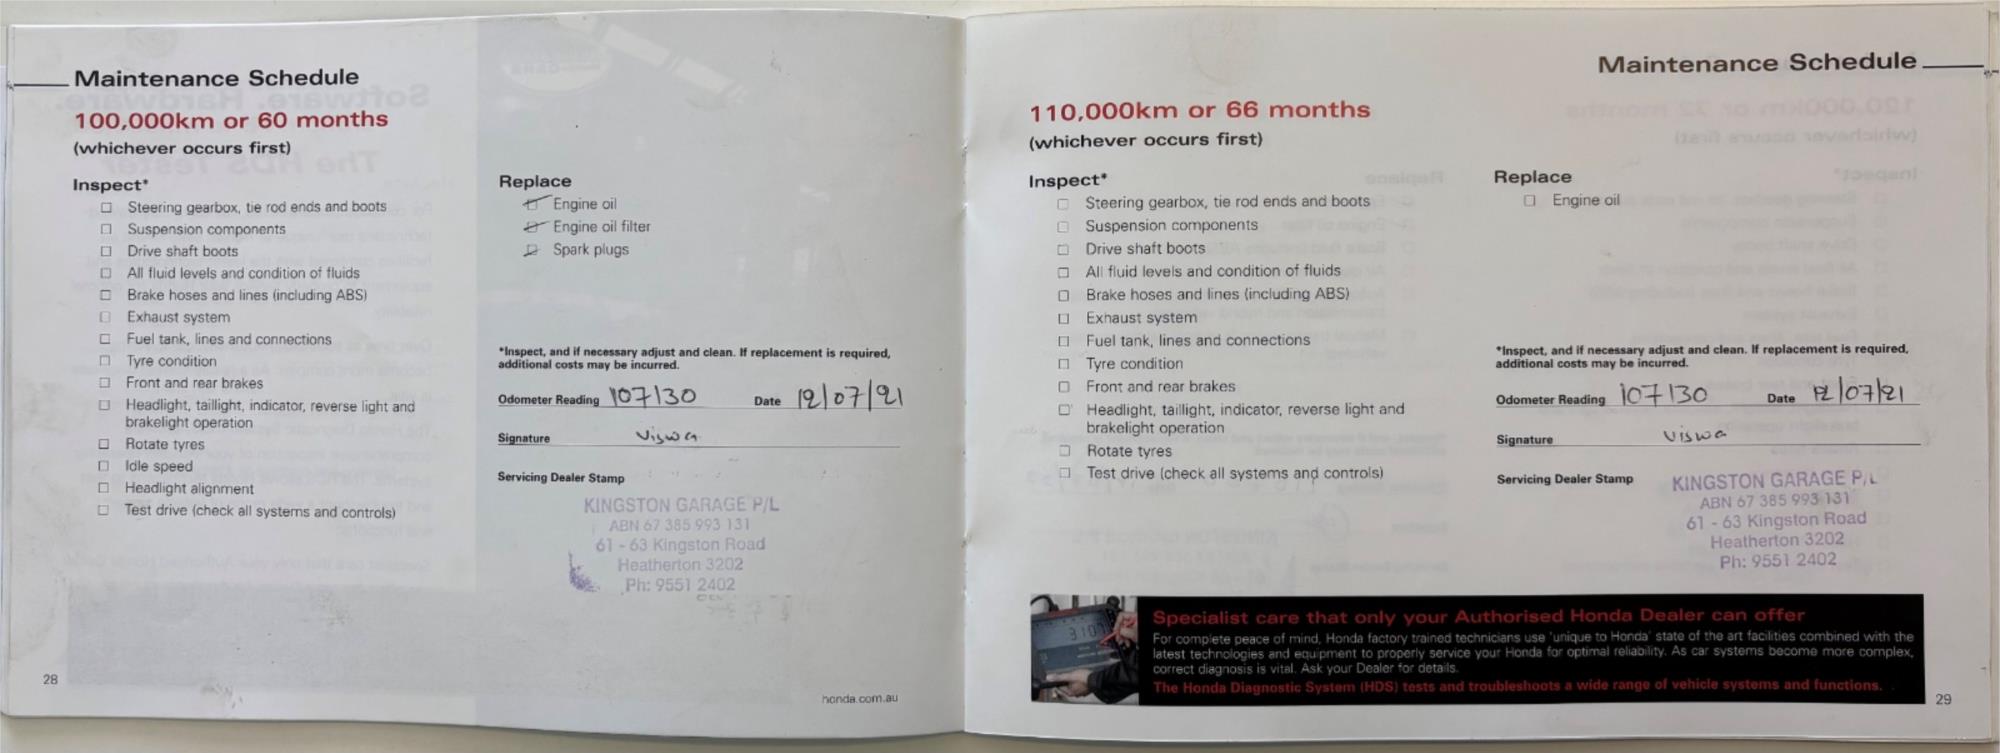 Maintenance Schedule
100,000km or 60 months
(whichever occurs first)
Inspect*
Steering gearbox, tie rod ends and boots
Suspension components
Drive shaft boots
All fluid levels and condition of fluids
Brake hoses and lines (including ABS)
Exhaust system
Fuel tank, lines and connections
Tyre condition
Front and rear brakes
Headlight, taillight, indicator, reverse light and
brakelight operation
Rotate tyres
Idle speed
Headlight alignment
Test drive (check all systems and controls)
28
Replace
Engine oil
Engine oil filter
Spark plugs
*Inspect, and if necessary adjust and clean. If replacement is required,
additional costs may be incurred.
Odometer Reading 107130 Date 12/07/21
Signature Viswa
Servicing Dealer Stamp
KINGSTON GARAGE P/L
ABN 67 385 993 131
61 - 63 Kingston Road
Heatherton 3202
Ph: 9551 2402
honda.com.au
Maintenance Schedule
110,000km or 66 months
(whichever occurs first)
Inspect*
Steering gearbox, tie rod ends and boots
Suspension components
Drive shaft boots
All fluid levels and condition of fluids
Brake hoses and lines (including ABS)
Exhaust system
Fuel tank, lines and connections
Tyre condition
Front and rear brakes
Headlight, taillight, indicator, reverse light and
brakelight operation
Rotate tyres
Test drive (check all systems and controls)
Replace
Engine oil
*Inspect, and if necessary adjust and clean. If replacement is required,
additional costs may be incurred.
Odometer Reading 107130 Date 12/07/21
Signature Viswa
Servicing Dealer Stamp
KINGSTON GARAGE P/L
ABN 67 385 993 131
61 - 63 Kingston Road
Heatherton 3202
Ph: 9551 2402
Specialist care that only your Authorised Honda Dealer can offer
For complete peace of mind, Honda factory trained technicians use 'unique to Honda' state of the art facilities combined with the
latest technologies and equipment to properly service your Honda for optimal reliability. As car systems become more complex,
correct diagnosis is vital. Ask your Dealer for details.
The Honda Diagnostic System (HDS) tests and troubleshoots a wide range of vehicle systems and functions.
29